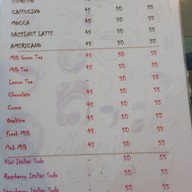 ESPRESSO 45 50 55
CAPPUCINO 45 50 55
MOCCA 45 50 55
HAZELNUT LATTE 45 50 55
AMERICANO 45 50 55
Milk Green Tea 45 50 55
Milk Tea 45 50 55
Lemon Tea 45 50 55
Chocolate 45 50 55
Cocoa 45 50 55
Ovaltine 45 50 55
Fresh Milk 45 50 55
Pink Milk 45 50 55
Kiwi Italian Soda 50 55
Raspberry Italian Soda 50 55
Strawberry Italian Soda 50 55